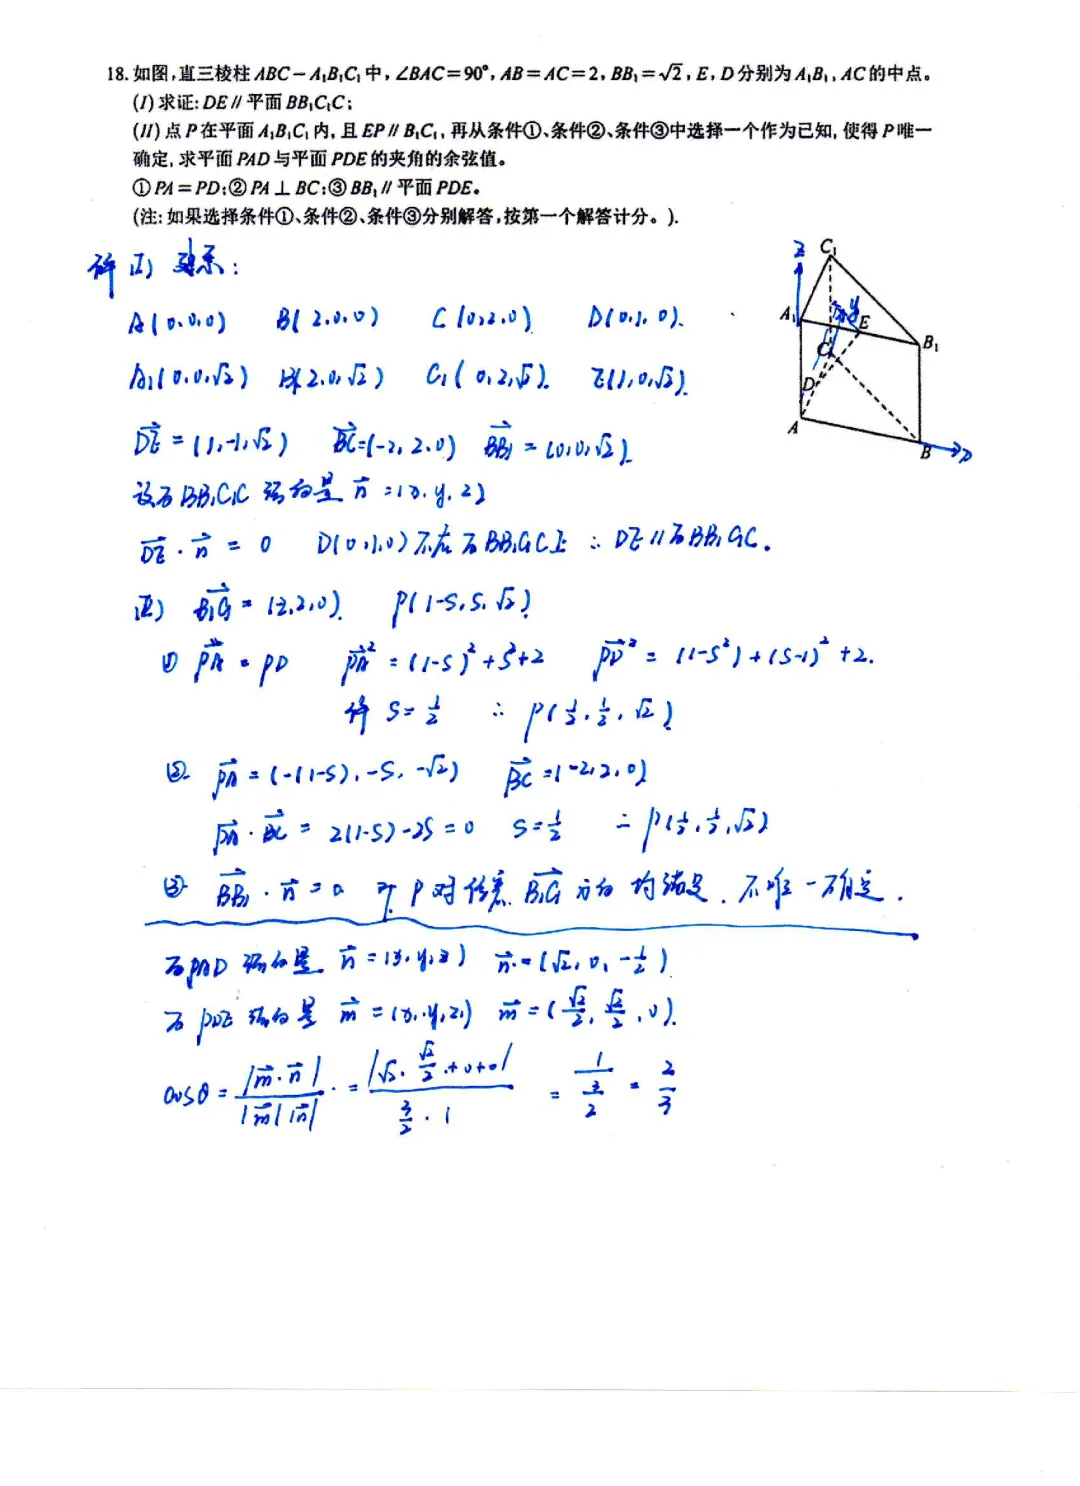 18. 如图,直三棱柱 ABC-A₁B₁C₁ 中, ∠BAC=90°, AB=AC=2, BB₁=√2, E, D 分别为 A₁B₁, AC 的中点。
(I) 求证: DE∥平面 BB₁C₁C;
(II) 点 P 在平面 A₁B₁C₁ 内, 且 EP∥B₁C₁, 再从条件①、条件②、条件③中选择一个作为已知, 使得 P 唯一
确定, 求平面 PAD 与平面 PDE 的夹角的余弦值。
① PA=PD; ② PA⊥BC; ③ BB₁∥平面 PDE。
(注: 如果选择条件①、条件②、条件③分别解答,按第一个解答计分。).
Z C₁
A₁ E B₁
C
D
A B
解 (I) 建系:
A(0.0.0) B(2.0.0) C(0,2.0) D(0.1.0).
A₁(0.0.√2) B₁(2.0,√2) C₁(0,2,√2). E(1,0,√2).
DE = (1,-1,√2) BC=(-2,2.0) BB₁ = (0,0,√2)
设面BB₁C₁C 法向量 n=(x.y.z)
DE·n = 0 D(0.1.0)不在面BB₁C₁C上 ∴ DE∥面BB₁C₁C.
II) B₁C₁=(-2,2,0) P(1-S,S,√2)
① PA = PD PA² = (1-S)²+S²+2 PD² = (1-S²)+(S-1)²+2.
得 S=1/2 ∴ P(1/2,1/2,√2)
② PA=(-(1-S),-S,-√2) BC=(-2,2,0)
PA·BC = 2(1-S)-2S=0 S=1/2 ∴ P(1/2,1/2,√2)
③ BB₁·n=0 P对任意 B₁C₁方向均满足. 不唯一确定.
面PAD 法向量 n=(x,y,z) n=(√2,0,-1/2)
面PDE 法向量 m=(x,y,z) m=(√2/2,√2/2,0).
cosθ = |m·n|/|m||n| = |√2·√2/2+0+0|/(3/2·1) = 1/(3/2) = 2/3